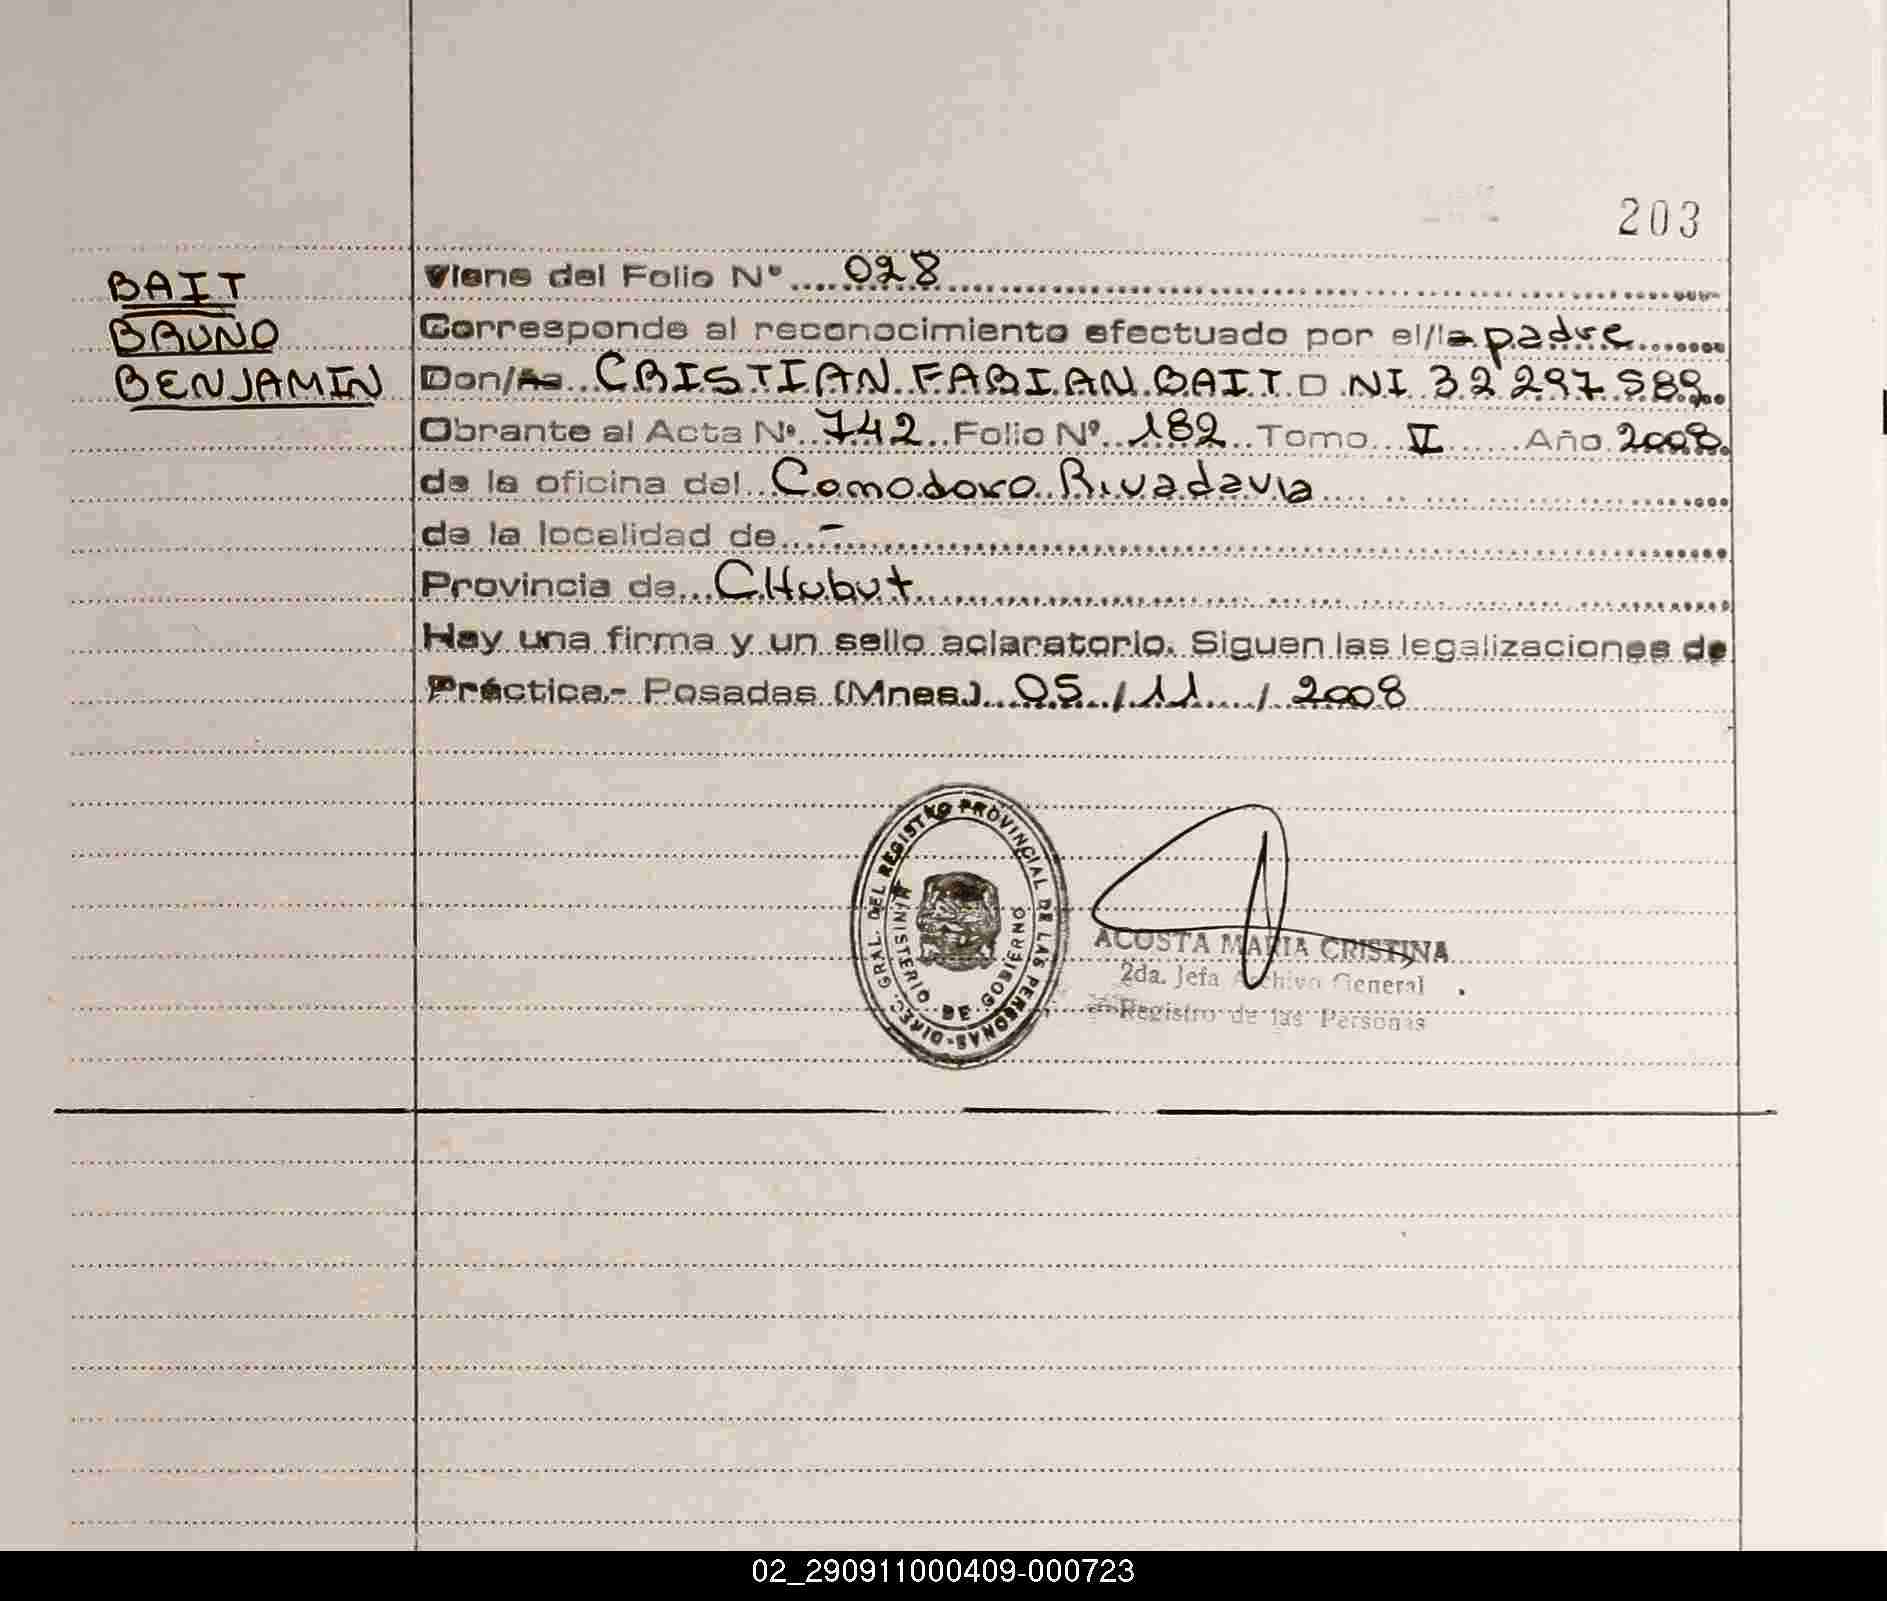 203
BAIT
BRUNO
BENJAMIN
Viene del Folio Nº 028
Corresponde al reconocimiento efectuado por el/la padre
Don/ña CRISTIAN FABIAN BAIT DNI 32 297 589
Obrante al Acta Nº 742 Folio Nº 182 Tomo II Año 2008
de la oficina del Comodoro Rivadavia
de la localidad de -
Provincia de CHubut
Hay una firma y un sello aclaratorio. Siguen las legalizaciones de
Práctica.- Posadas (Mnes.) 05 / 11 / 2008
DIREC. GRAL. DEL REGISTRO PROVINCIAL DE LAS PERSONAS
MINISTERIO DE GOBIERNO
ACOSTA MARIA CRISTINA
2da. Jefa Archivo General
Registro de las Personas
02_290911000409-000723